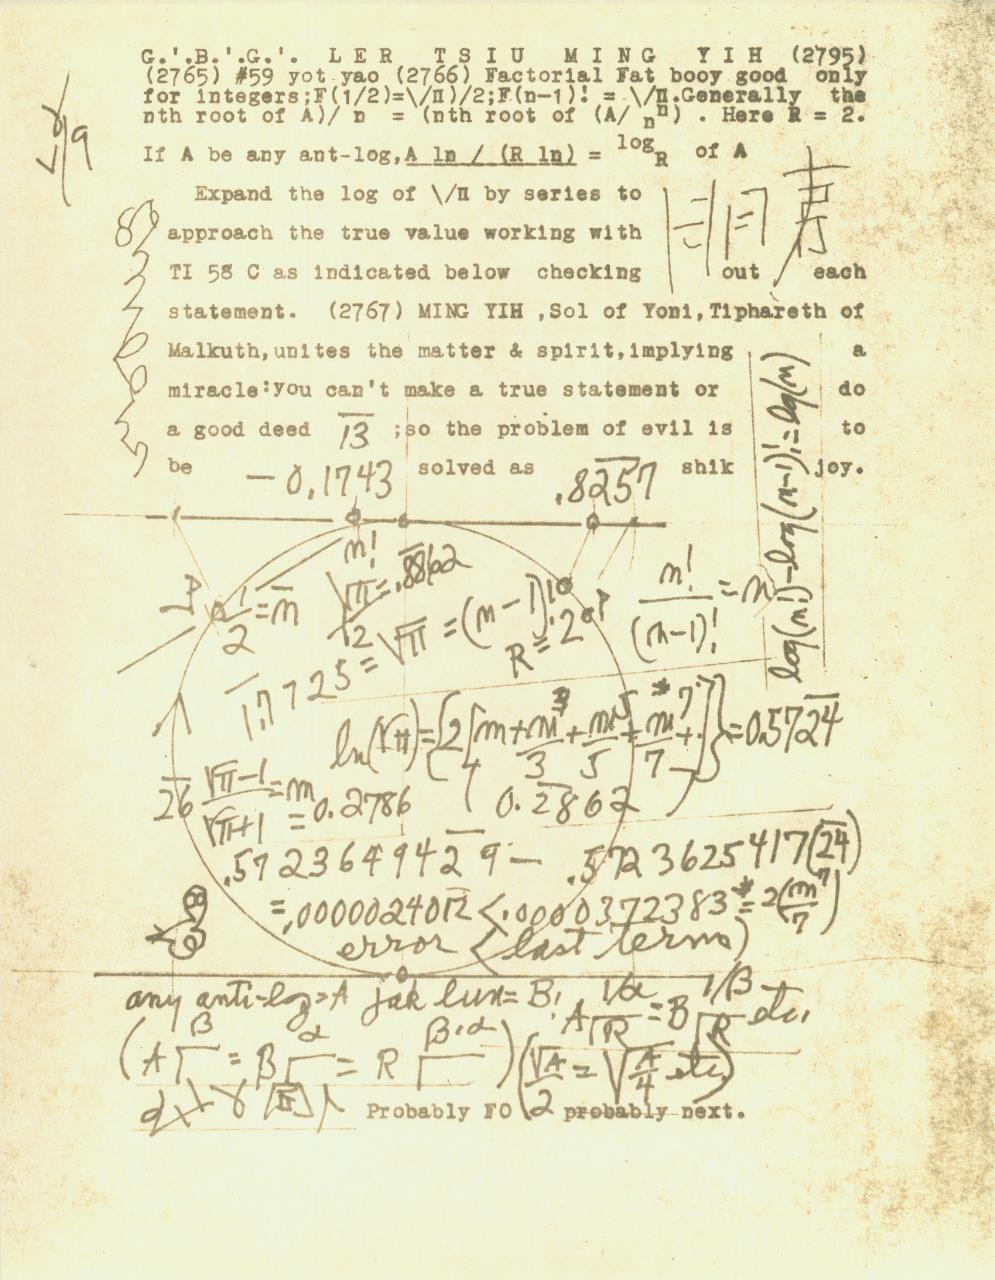 G.'.B.'.G.'. LER TSIU MING YIH (2795)
(2765) #59 yot yao (2766) Factorial Fat booy good only
for integers;F(1/2)=\/π)/2;F(n-1)! = \/π.Generally the
nth root of A)/ n = (nth root of (A/ nⁿ) . Here R = 2.
If A be any ant-log,A ln / (R ln) = log_R of A
Expand the log of \/π by series to
approach the true value working with
TI 58 C as indicated below checking out each
statement. (2767) MING YIH ,Sol of Yoni,Tiphareth of
Malkuth,unites the matter & spirit,implying a
miracle:you can't make a true statement or do
a good deed 13 ;so the problem of evil is to
be -0.1743 solved as .8257 shik joy.
log(n!)-log(n-1)!=log(n)
n!
1/2=n
√π/2=.8862
1.7725=√π=(n-1)!
R=2
P
n!/(n-1)!=n
ln(√π)={2[m+m³/3+m⁵/5+m⁷/7+.]}=0.5724
26 √π-1/√π+1=m
=0.2786
0.2862
.5723649429- .5723625417(24)
=.0000024012<.0000372383*=2(m⁷/7)
error < last term)
any anti-log=A jak lun=B!
A 1/α √R=B 1/β √R etc.
(A β = B α = R β·α) (√A/2=√A/4 etc)
Probably FO probably next.